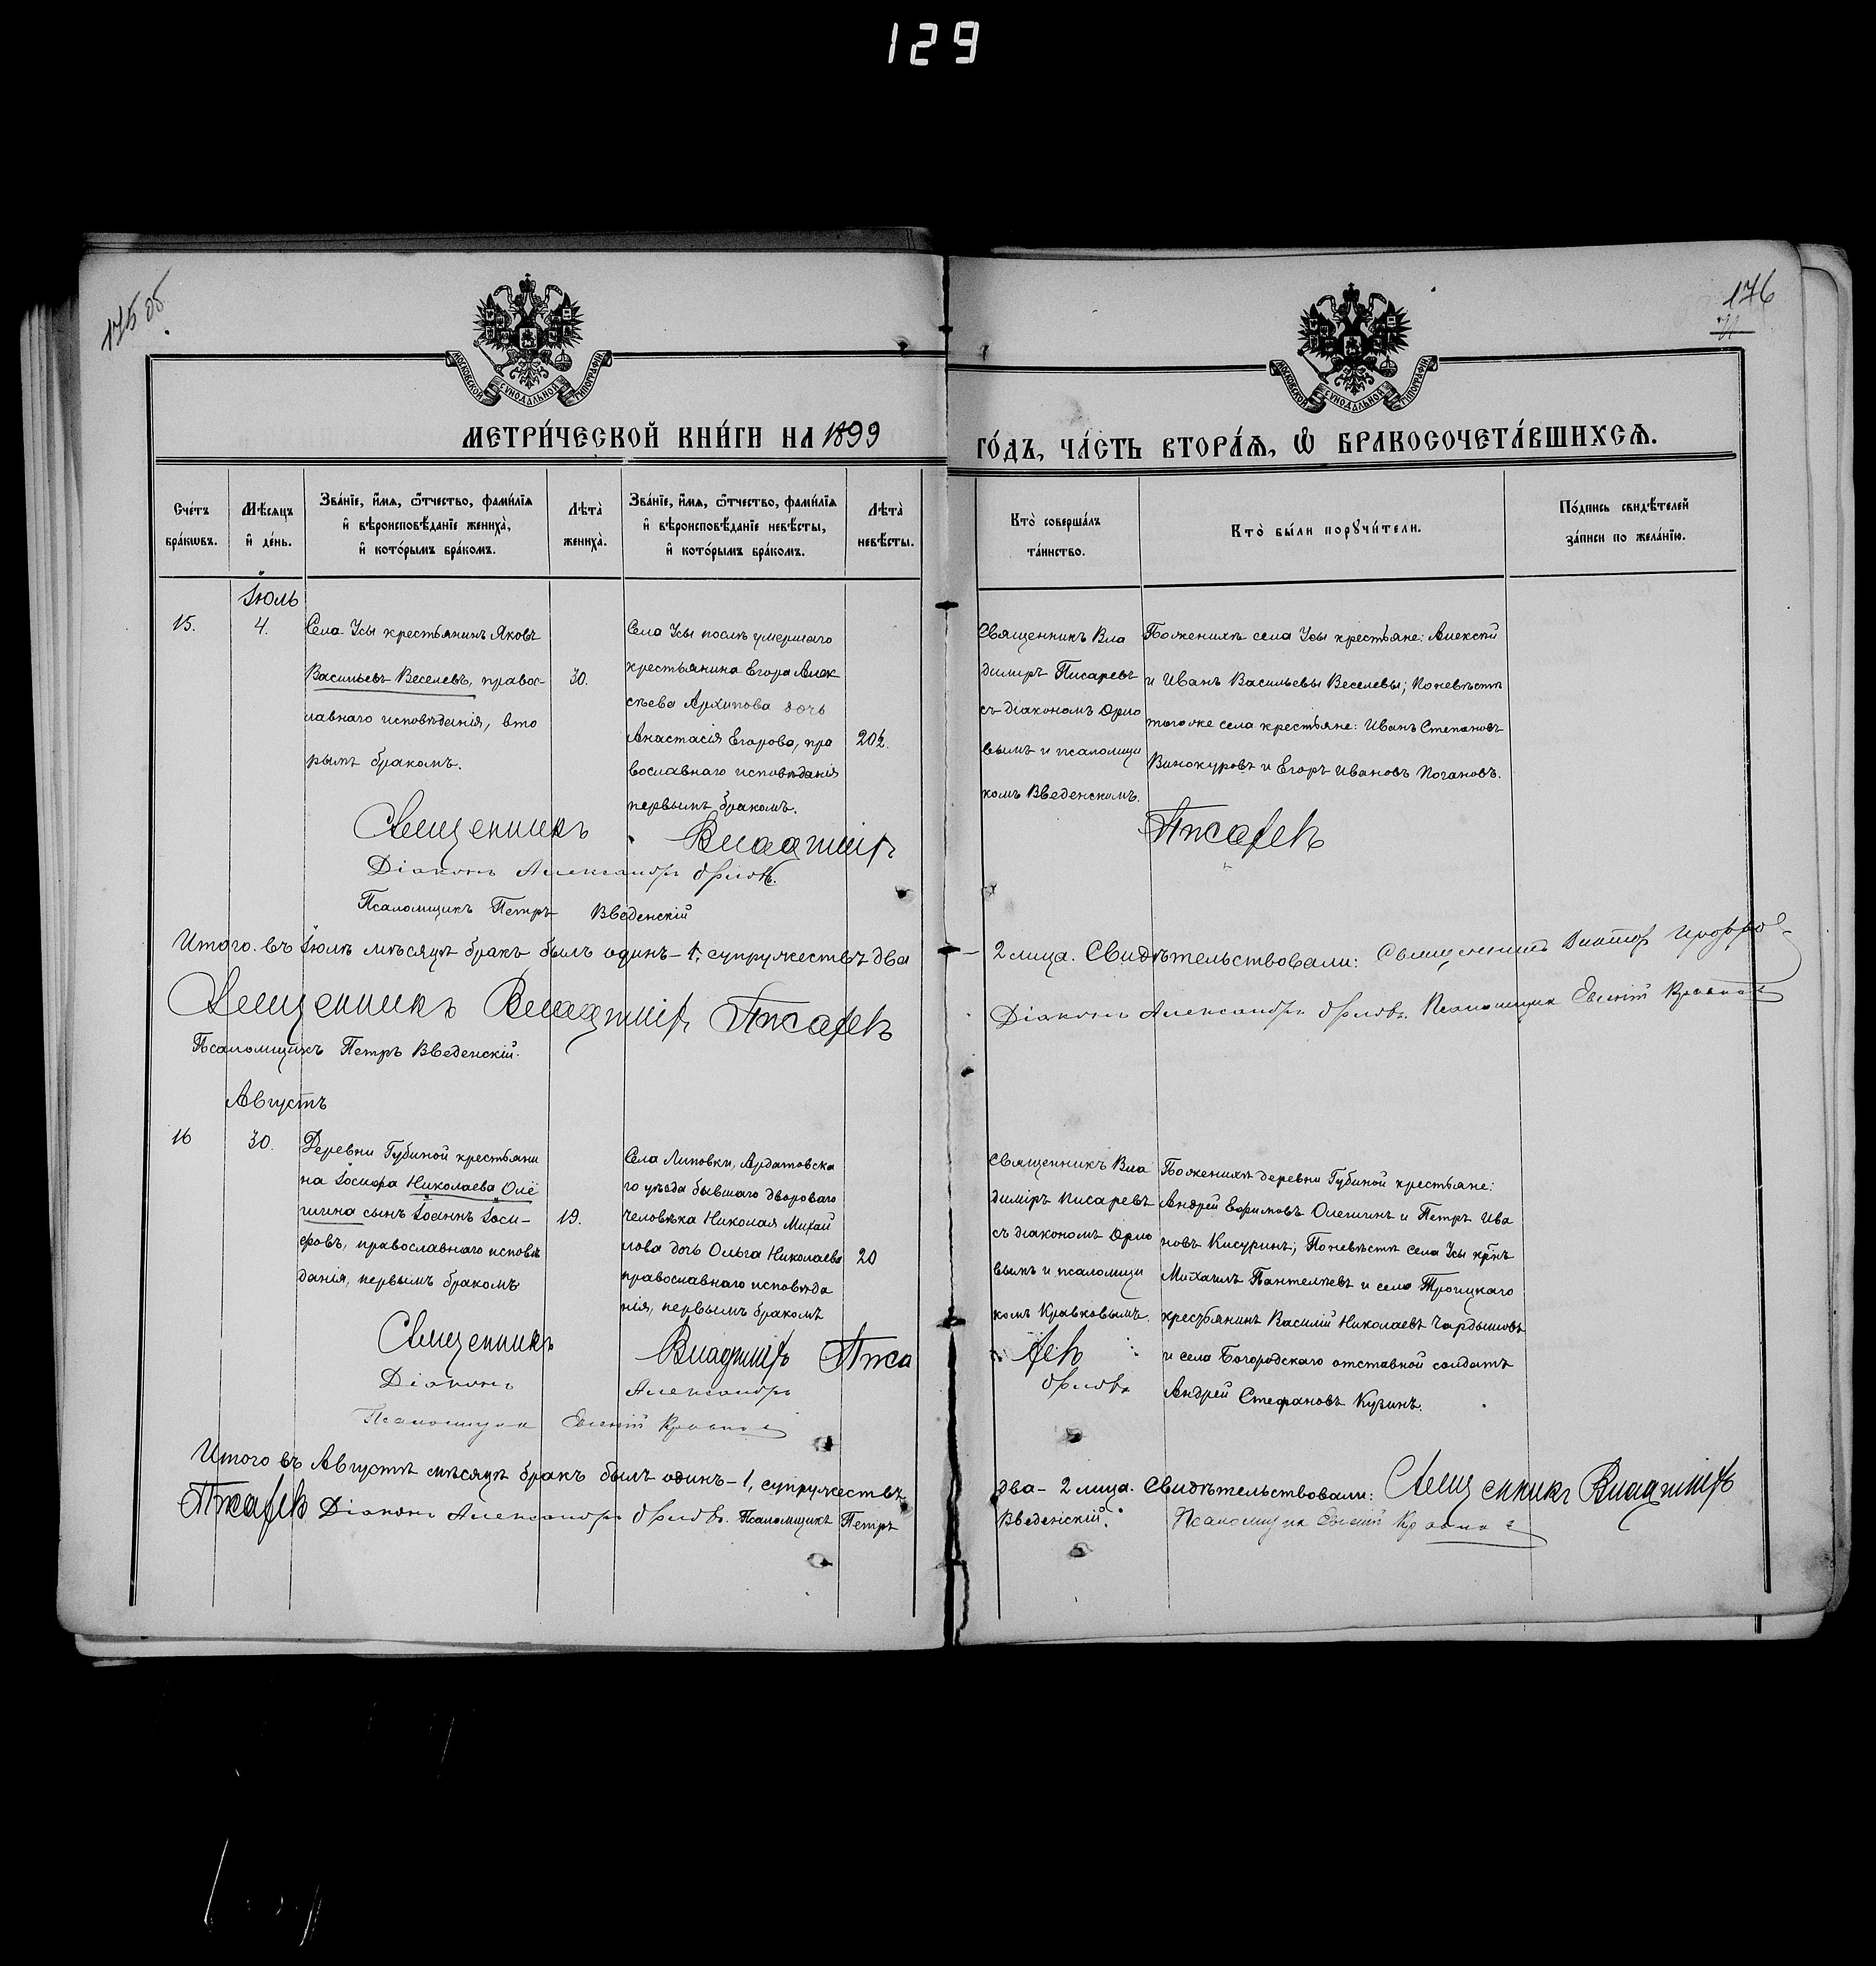 129
175 об
176
МОСКОВСКОЙ СУНОДАЛЬНОЙ ТИПОГРАФІИ
МОСКОВСКОЙ СУНОДАЛЬНОЙ ТИПОГРАФІИ
МЕТРИ́ЧЕСКОЙ КНИ́ГИ НА 1899
ГО́ДЪ, ЧА́СТЬ ВТОРА́Ѧ, Ѽ БРАКОСОЧЕТА́ВШИХСѦ.
Сче́тъ
бра́кѡвъ.
Мѣ́сѧцъ
и҆ де́нь.
Зва́нїе, и҆́мѧ, ѻ҆́тчество, фами́лїѧ
и҆ вѣроисповѣ́данїе жениха̀,
и҆ кото́рымъ бра́комъ.
Лѣта̀
жениха̀.
Зва́нїе, и҆́мѧ, ѻ҆́тчество, фами́лїѧ
и҆ вѣроисповѣ́данїе невѣ́сты,
и҆ кото́рымъ бра́комъ.
Лѣта̀
невѣ́сты.
Кто̀ соверша́лъ
та́инство.
Кто̀ бы́ли порꙋчи́тели.
По́дпись свидѣ́телей
за́писи по жела́нїю.
Іюль
15.
4.
Села Усы крестьянинъ Яковъ
Васильевъ Веселевъ, правос-
лавнаго исповѣданія, вто
рымъ бракомъ.
30.
Села Усы послѣ умершаго
крестьянина Егора Алек
сѣева Архипова дочь
Анастасія Егорова, пра
вославнаго исповѣданія
первымъ бракомъ.
Священникъ Вла
диміръ Писаревъ
съ діакономъ Орло
вымъ и псаломщи
комъ Введенскомъ.
По женихѣ села Усы крестьяне: Алексѣй
и Иванъ Васильевы Веселевы; По невѣстѣ
того же села крестьяне: Иванъ Степановъ
Винокуровъ и Егоръ Ивановъ Погановъ.
Священникъ Владиміръ Писаревъ
Діаконъ Александръ Орловъ.
Псаломщикъ Петръ Введенскій
Итого въ Іюлѣ мѣсяцѣ бракъ былъ одинъ – 1; супружествъ два
– 2 лица. Свидѣтельствовали: Священникъ Викторъ
Священникъ Владиміръ Писаревъ
Діаконъ Александръ Орловъ. Псаломщикъ Евгеній Кравковъ
Псаломщикъ Петръ Введенскій.
Августъ
16
30.
Деревни Губиной крестьяни
на Іосифа Николаева Олё
шина сынъ Іоаннъ Іоси-
фовъ, православнаго исповѣ
данія, первымъ бракомъ
19.
Села Липовки, Ардатовска
го уѣзда бывшаго двороваго
человѣка Николая Михай
лова дочь Ольга Николаева
православнаго исповѣда
нія, первымъ бракомъ
20
Священникъ Вла
диміръ Писаревъ
съ діакономъ Орло
вымъ и псаломщи
комъ Кравковымъ.
По женихѣ деревни Губиной крестьяне:
Андрей Ефимовъ Олешинъ и Петръ Ива
новъ Кисуринъ; По невѣстѣ села Усы кр̃нъ
Михаилъ Пантелѣевъ и села Троицкаго
крестьянинъ Василій Николаевъ Чардымовъ
и села Богородскаго отставной солдатъ
Андрей Стефановъ Кузинъ.
Священникъ Владиміръ Писаревъ
Діаконъ Александръ Орловъ
Псаломщикъ Евгеній Кравковъ
Итого въ Августѣ мѣсяцѣ бракъ былъ одинъ – 1, супружествъ
два – 2 лица. Свидѣтельствовали: Священникъ Владиміръ
Писаревъ Діаконъ Александръ Орловъ. Псаломщикъ Петръ
Введенскій. Псаломщикъ Евгеній Кравковъ